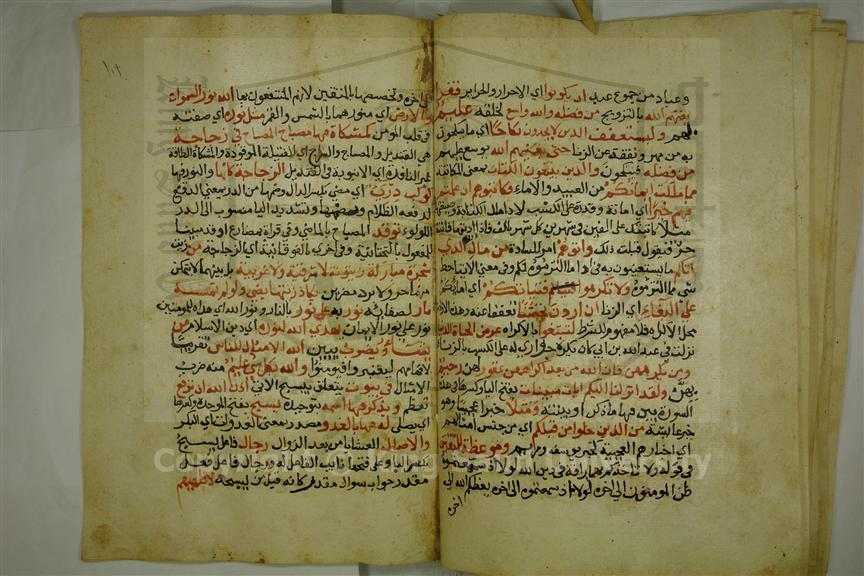 وعباد من جموع عبد ان يكونوا اي الاحرار والحراير فقرا
يغنهم الله بالتزويج من فضله والله واسع لخلقه عليم
بهم وليستعفف الذين لا يجدون نكاحا اي ما ينكحون
به من مهر ونفقة عن الزنا حتى يغنيهم الله يوسع عليهم
من فضله فينكحون والذين يبتغون الكتاب بمعنى المكاتبة
مما ملكت ايمانكم من العبيد والاماء فكاتبوهم ان علمتم
فيهم خيرا اي امانة وقدرة على الكسب لاداء مال الكتابة وصيغتها
مثلا كاتبتك على الفين في شهرين كل شهر الف فاذا اديتها فانت
حر فيقول قبلت ذلك واتوهم امر للسادة من مال الله الذي
اتاكم ما يستعينون به في اداء ما التزموه لكم وفي معنى الايتاء حط
شي مما التزموه ولا تكرهوا فتياتكم اي اماءكم
على البغاء اي الزنا ان اردن تحصنا تعففا عنه وهذه الارادة
محل الاكراه فلا مفهوم للشرط لتبتغوا بالاكراه عرض الحياة الدنيا
نزلت في عبد الله بن ابي كان يكره جواري له على الكسب بالزنا
ومن يكرههن فان الله من بعد اكراههن غفور لهن رحيم
بهن ولقد انزلنا اليكم ايات مبينات بفتح اليا وكسرها في هذه
السورة بين فيها ما ذكر او بينة ومثلا خبرا عجيبا وهو
خبر عايشة من الذين خلوا من قبلكم اي من جنس امثالهم
اي اخبارهم العجيبة كخبر يوسف ومريم وموعظة للمتقين
في قوله ولا تاخذكم بهما رافة في دين الله لولا اذ سمعتموه
ظن المومنون الى اخره ولولا اذ سمعتموه الى اخره يعظكم الله الى
اخره
الى اخره وتخصيصها بالمتقين لانهم المنتفعون بها الله نور السموات
والارض اي منورهما بالشمس والقمر مثل نوره اي صفته
في قلب المومن كمشكاة فيها مصباح المصباح في زجاجة
هي القنديل والمصباح السراج اي الفتيلة الموقودة والمشكاة الطاقة
غير النافذة اي الانبوبة في القنديل الزجاجة كانها والنور فيها
كوكب دري اي مضي بكسر الدال وضمها من الدر بمعنى الدفع
لدفعه الظلام وبضمها وتشديد اليا منسوب الى الدر
اللولو توقد المصباح بالماضي وفي قراة بمضارع اوقد مبنيا
للمفعول بالتحتانية وفي اخرى بالفوقانية اي الزجاجة من زيت
شجرة مباركة زيتونة لا شرقية ولا غربية بل بينهما لا يتمكن
منها حر ولا برد مضرين يكاد زيتها يضي ولو لم تمسسه
نار لصفايه نور به على نور بالنار ونور الله اي هداه للمومنين
نور على نور الايمان يهدي الله لنوره اي دين الاسلام من
يشاء ويضرب يبين الله الامثال للناس تقريبا
لافهامهم ليعتبروا فيومنوا والله بكل شي عليم منه ضرب
الامثال في بيوت يتعلق بيسبح الاتي اذن الله ان ترفع
تعظم ويذكر فيها اسمه بتوحيده يسبح بفتح الموحدة وكسرها
اي يصلي له فيها بالغدو مصدر بمعنى الغدوات اي البكر
والاصال العشايا من بعد الزوال رجال فاعل يسبح
بكسر البا وعلى فتحها نايب الفاعل له ورجال فاعل فعل
مقدر جواب سوال مقدر كانه قيل من يسبحه لا تلهيهم